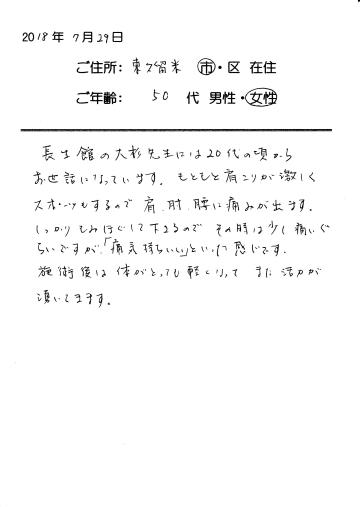 2018年 7月29日
ご住所: 東久留米 市・区 在住
ご年齢: 50 代 男性・女性
長生館の大杉先生には20代の頃から
お世話になっています。もともと肩こりが激しく
スポーツもするので 肩、肘、腰に痛みが出ます。
しっかりもみほぐして下さるので その時は少し痛いぐ
らいですが、「痛気持ちいい」といった感じです。
施術後は体がとっても軽くなって また活力が
湧いてきます。